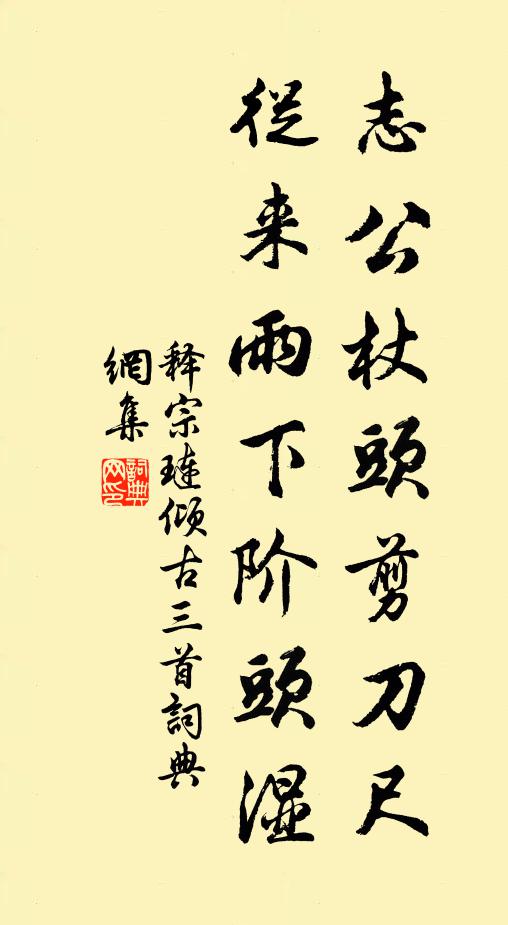 志公杖頭剪刀尺
從来雨下阶頭湿
释宗璉倾古三首詞典
網集
詞典網印